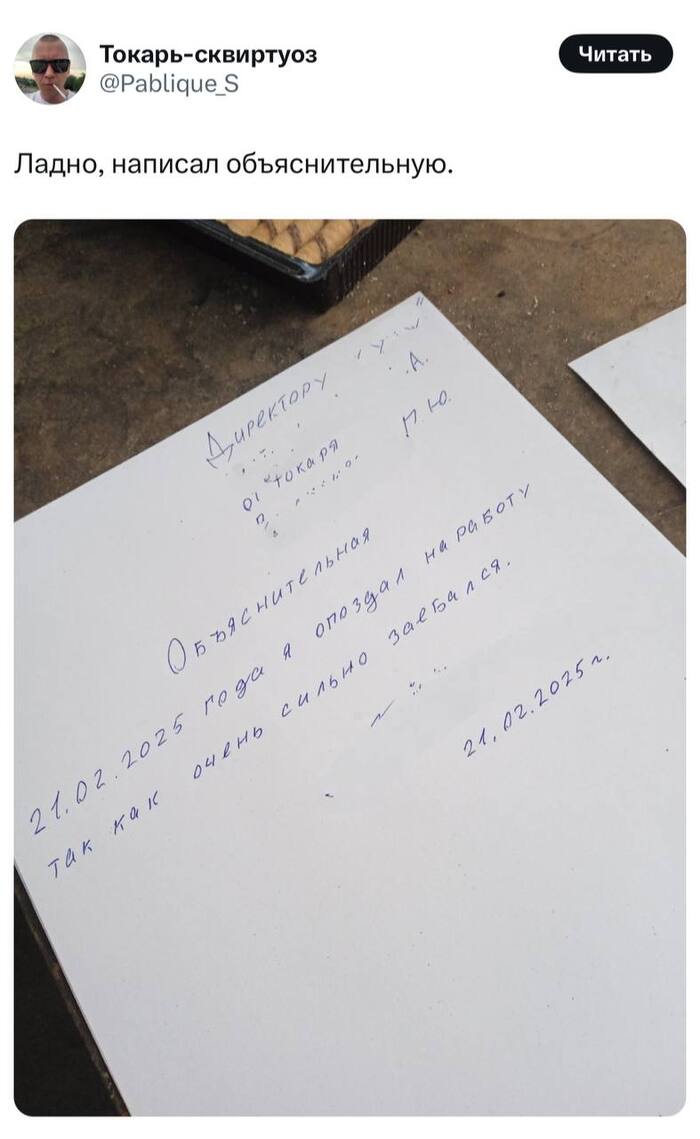 Токарь-сквиртуоз
@Pablique_S
Читать
Ладно, написал объяснительную.
Директору
А.
от токаря
П.Ю.
Объяснительная
21.02.2025 года я опоздал на работу
так как очень сильно заебался.
21.02.2025 г.